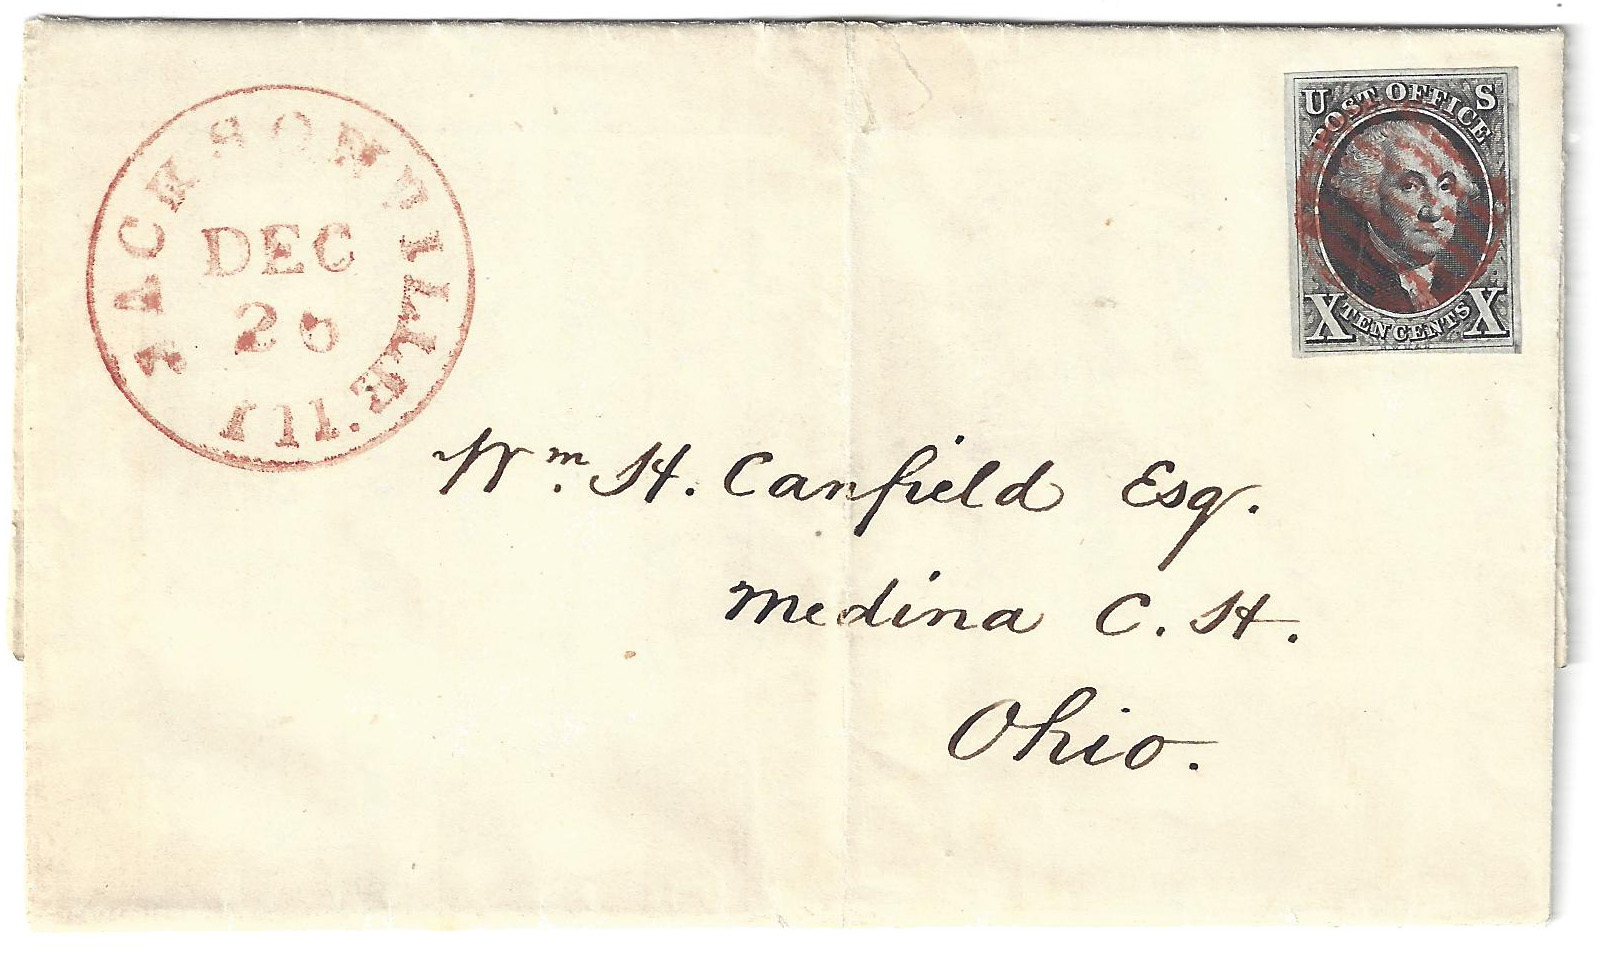 JACKSONVILLE. Ill
DEC
26
U S
POST OFFICE
X TEN CENTS X
Wm. H. Canfield Esq.
Medina C. H.
Ohio.